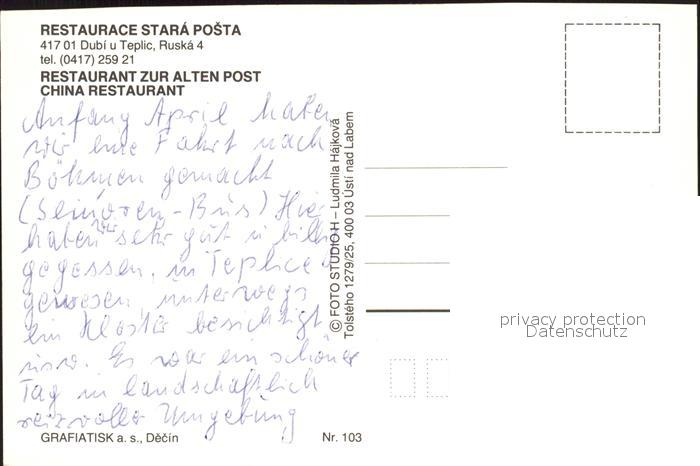 RESTAURACE STARÁ POŠTA
417 01 Dubí u Teplic, Ruská 4
tel. (0417) 259 21
RESTAURANT ZUR ALTEN POST
CHINA RESTAURANT
Anfang April haben
wir eine Fahrt nach
Böhmen gemacht
(Senioren-Bus) Hier
haben wir sehr gut u. billig
gegessen, in Teplice
gewesen, unterwegs
ein Kloster besichtigt
usw. Es war ein schöner
Tag in landschaftlich
reizvoller Umgebung
GRAFIATISK a. s., Děčín
Nr. 103
© FOTO STUDIO H – Ludmila Hájková
Tolstého 1279/25, 400 03 Ústí nad Labem
privacy protection
Datenschutz